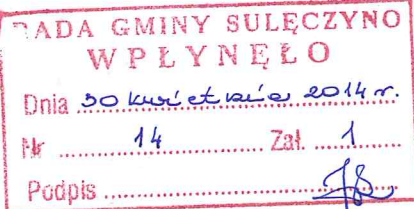 RADA GMINY SULĘCZYNO
WPŁYNĘŁO
Dnia 30 kwietnia 2014 r.
Nr 14 Zał. 1
Podpis